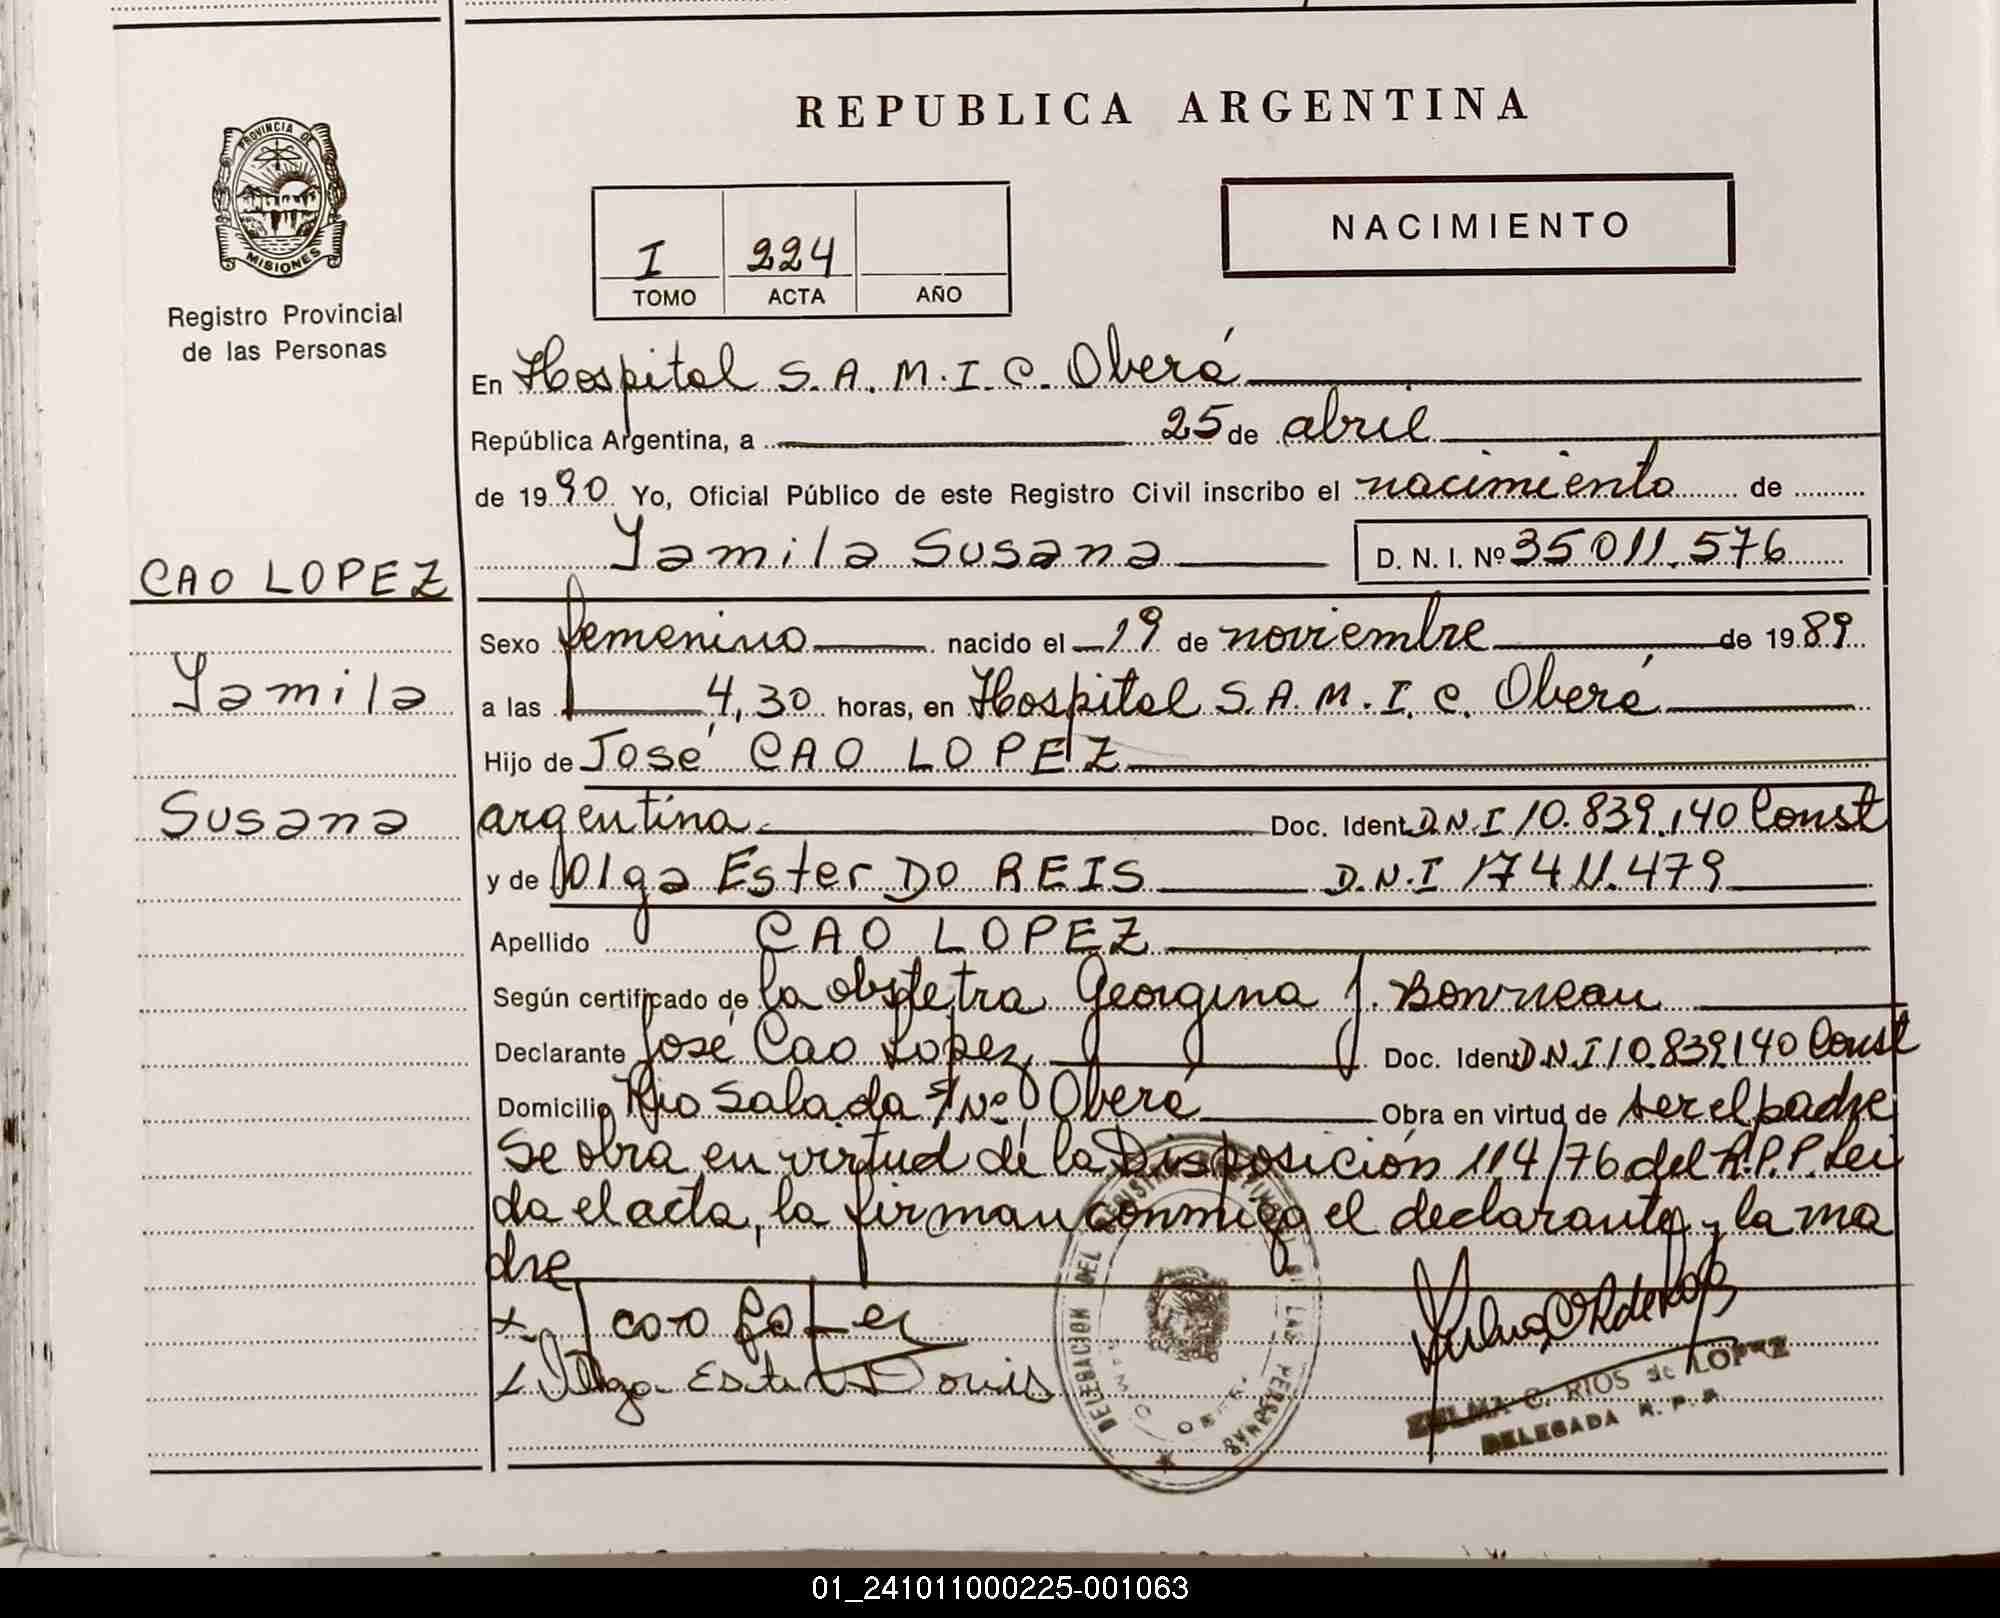 REPUBLICA ARGENTINA
PROVINCIA DE
MISIONES
Registro Provincial
de las Personas
NACIMIENTO
I 224
TOMO ACTA AÑO
En Hospital S.A.M.I.C. Oberá
República Argentina, a 25 de abril
de 1990 Yo, Oficial Público de este Registro Civil inscribo el nacimiento de
Yamila Susana D.N.I. Nº 35011.576
CAO LOPEZ
Yamila
Susana
Sexo femenino nacido el 19 de noviembre de 1989
a las 4,30 horas, en Hospital S.A.M.I.C. Oberá
Hijo de José CAO LOPEZ
argentina Doc. Ident. D.N.I 10.839.140 Const
y de Olga Ester DO REIS D.N.I 17411.479
Apellido CAO LOPEZ
Según certificado de la obstetra Georgina J. Bonneau
Declarante José Cao Lopez Doc. Ident. D.N.I 10.839140 Const
Domicilio Rio Salada S/Nº Oberá Obra en virtud de ser el padre
Se obra en virtud de la Disposición 114/76 del R.P.P. Lei
da el acta, la firman conmigo el declarante y la ma
dre
x
x Olga Ester
DELEGACION DEL REGISTRO PROVINCIAL DE LAS PERSONAS
OBERA
ZULMA C. RIOS de LOPEZ
DELEGADA R. P. P.
01_241011000225-001063